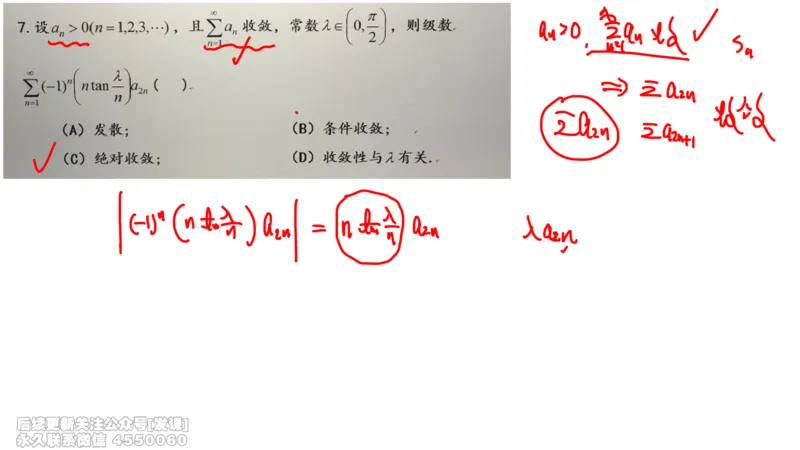 7. 设 aₙ > 0(n = 1,2,3,⋯)，且 ∑_{n=1}^{∞} aₙ 收敛，常数 λ ∈ (0, π/2)，则级数
∑_{n=1}^{∞} (-1)ⁿ (n tan λ/n) a₂ₙ (    ).
(A) 发散; (B) 条件收敛;
(C) 绝对收敛; (D) 收敛性与 λ 有关.
aₙ>0, ∑_{n=1}^{∞} aₙ 收敛 ✓ Sₙ
⇒ ∑ a₂ₙ
∑ a₂ₙ ∑ a₂ₙ₊₁ 收敛
|(-1)ⁿ (n tan λ/n) a₂ₙ| = n tan λ/n a₂ₙ λ a₂ₙ
后续更新关注公众号[发课]
永久联系微信 4550060